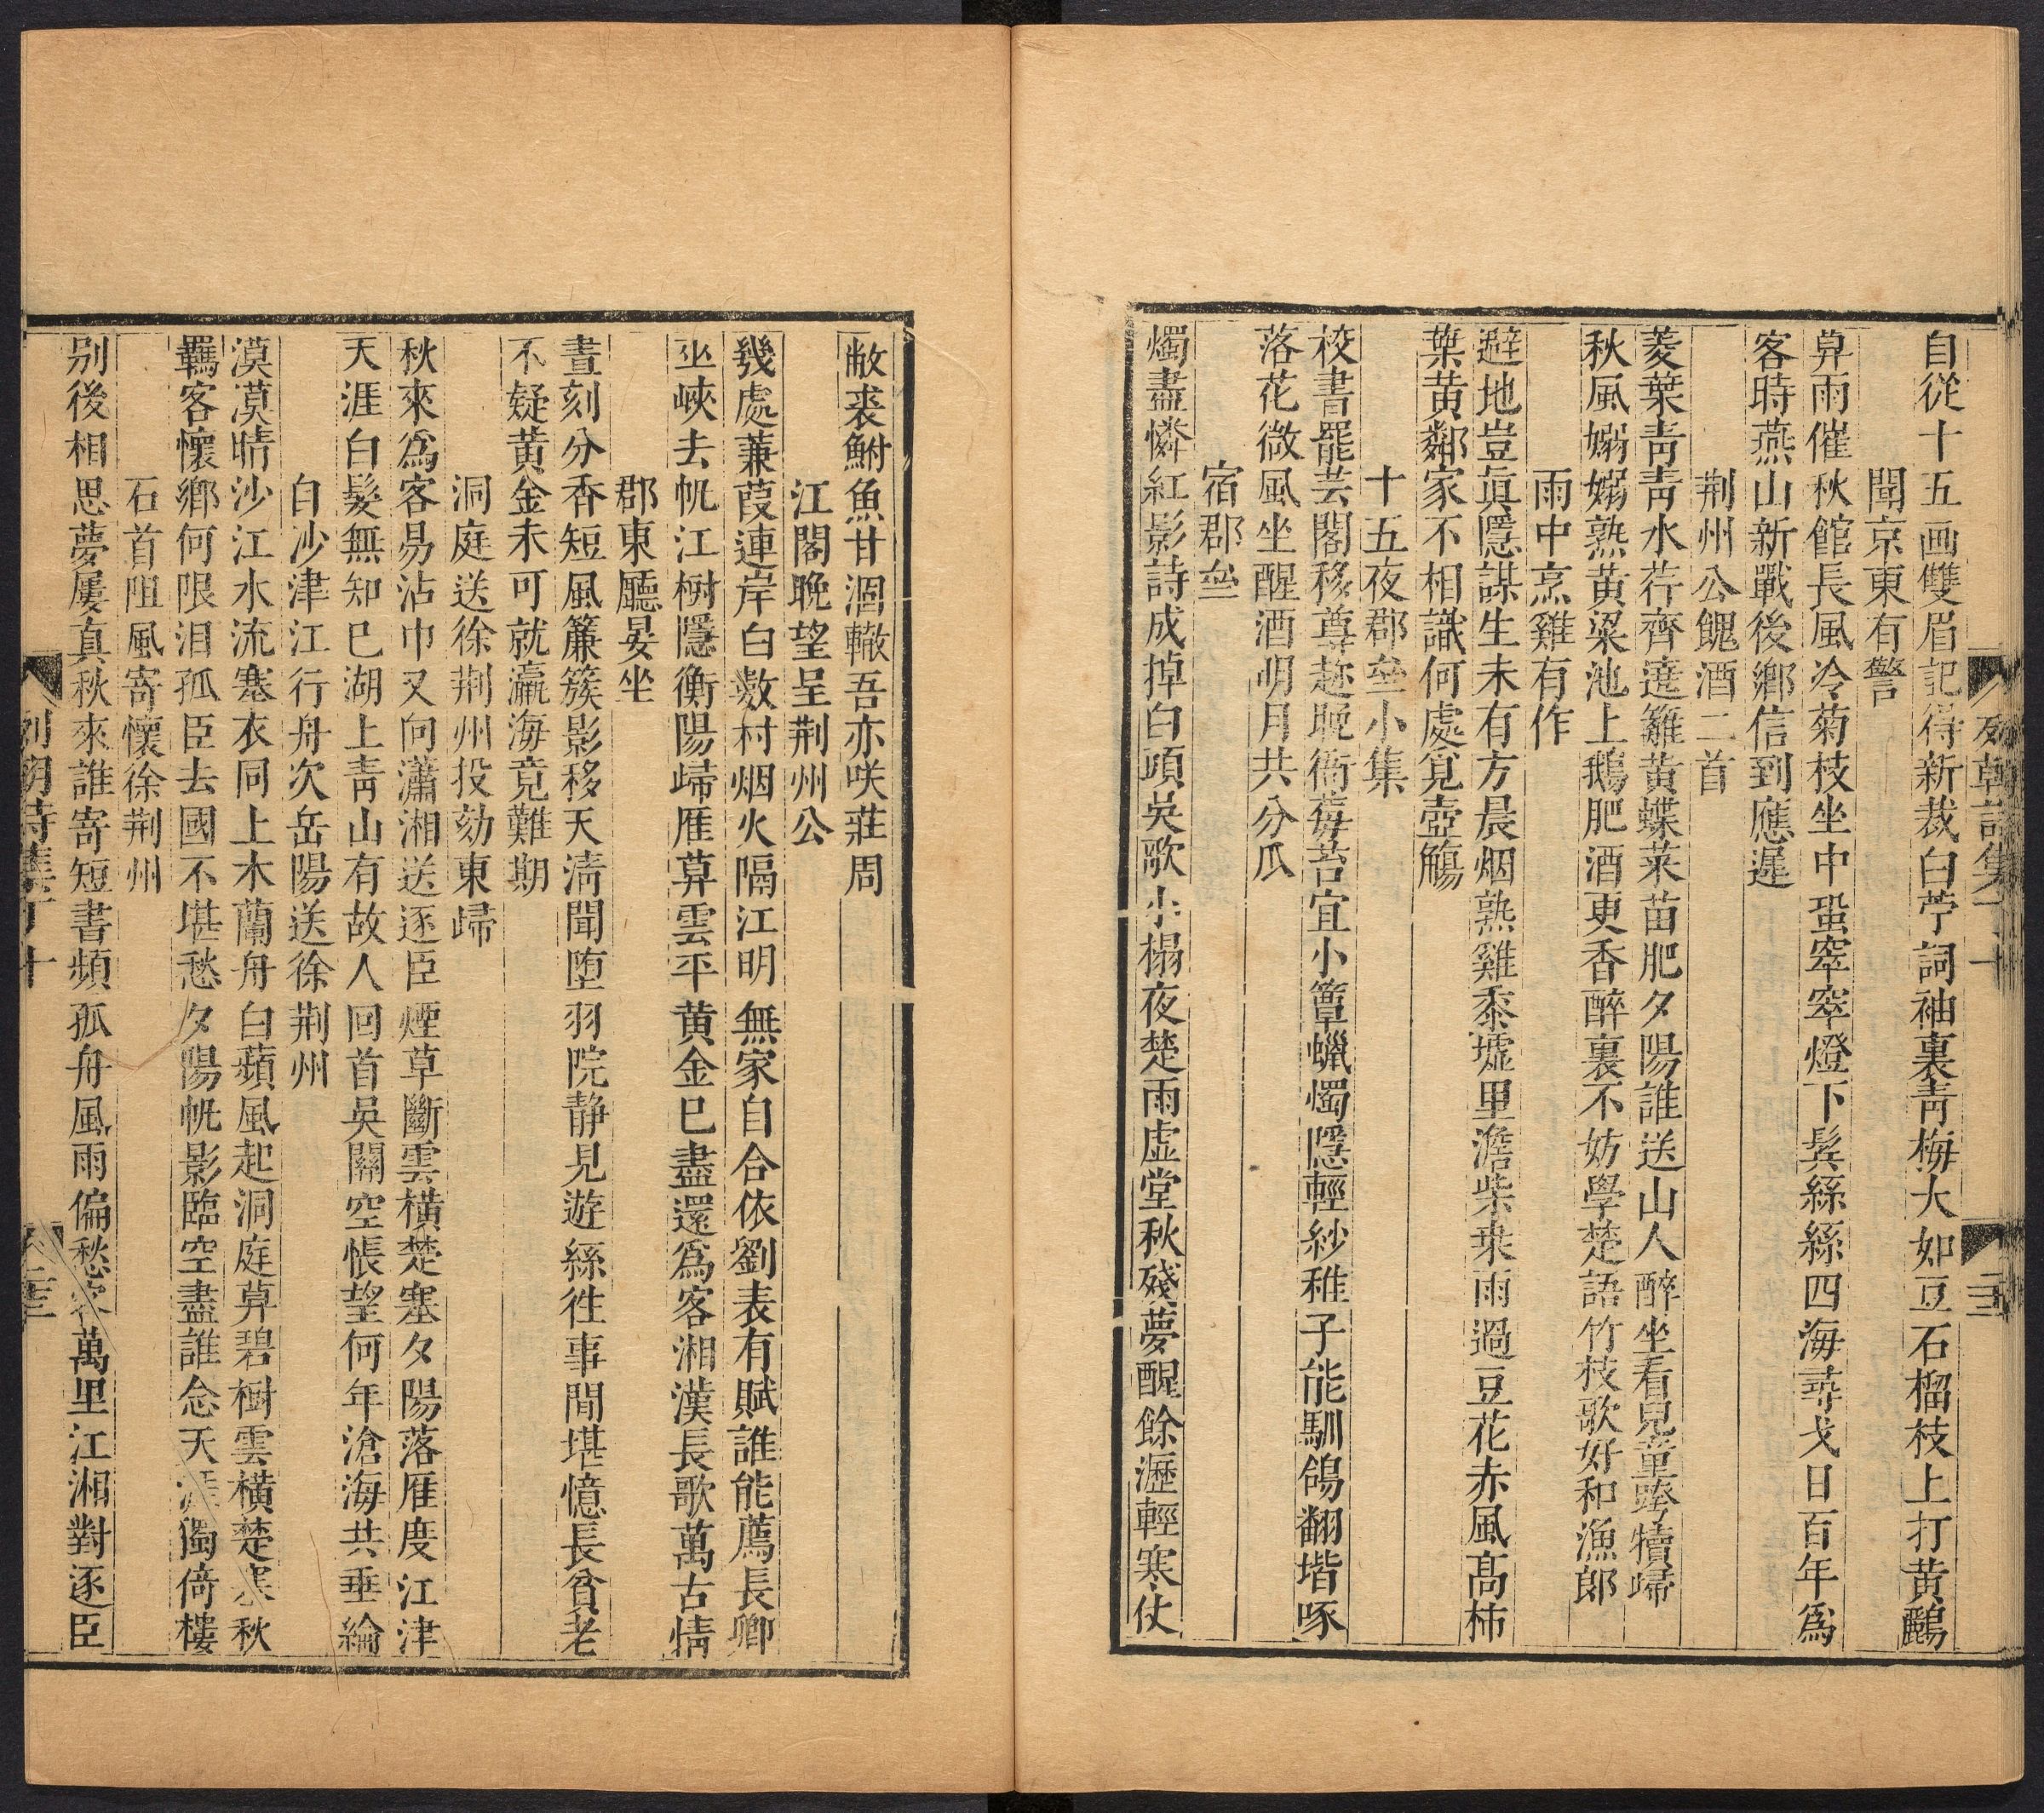 自從十五画雙眉記得新裁白苧詞袖裏靑梅大如豆石榴枝上打黄鸝
聞京東有警
算雨催秋館長風冷菊枝坐中蛩窣窣燈下鬂絲絲四海尋戈日百年爲
客時燕山新戰後鄉信到應遲
荆州公餽酒二首
菱葉靑靑水荇齊遶籬黄蝶菜苗肥夕陽誰送山人醉坐看兒童跨犢歸
秋風嫋嫋熟黄粱池上鵝肥酒更香醉裏不妨學楚語竹枝歌好和漁郎
雨中烹雞有作
避地豈眞隱謀生未有方晨烟熟雞黍墟里澹柴桒雨過豆花赤風髙柿
葉黄鄰家不相識何處覓壺觴
十五夜郡垒小集
校書罷芸閣移尊趂晚衙莓苔宜小簟蠟燭隱輕紗稚子能馴鴿翻堦啄
落花微風坐醒酒明月共分瓜
宿郡垒
燭盡憐紅影詩成掉白頭吳歌小榻夜楚雨虚堂秋殘夢醒餘瀝輕寒仗
敝裘鮒魚甘涸轍吾亦咲莊周
江閣晚望呈荆州公
幾處蒹葭連岸白數村烟火隔江明無家自合依劉表有賦誰能薦長卿
巫峽去帆江樹隱衡陽歸雁算雲平黄金已盡還爲客湘漢長歌萬古情
郡東廳晏坐
晝刻分香短風簾簇影移天淸聞堕羽院静見遊絲徃事間堪憶長貧老
不疑黄金未可就瀛海竟難期
洞庭送徐荆州投劾東歸
秋來爲客易沾巾又向瀟湘送逐臣煙草斷雲橫楚塞夕陽落雁度江津
天涯白髮無知已湖上靑山有故人回首吳關空悵望何年滄海共垂綸
白沙津江行舟次岳陽送徐荆州
漠漠晴沙江水流蹇衣同上木蘭舟白蘋風起洞庭算碧樹雲橫楚塞秋
羈客懷鄉何限泪孤臣去國不堪愁夕陽帆影臨空盡誰念天涯獨倚樓
石首阻風寄懷徐荆州
别後相思夢屢真秋來誰寄短書頻孤舟風雨偏愁客萬里江湘對逐臣
列朝詩集丁十